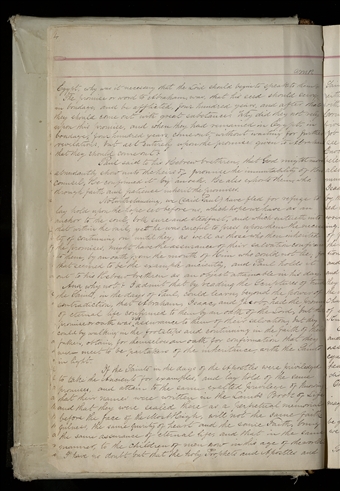 Egypt, why was it necessary that the Lord should begin to speak to them?
The promise or word to Abraham was, that his seed should serve
in bondage and be afflicted, four hundred years, and after that
they should come out with great substance. Why did they not rely
upon this promise, and when they had remained in Egypt, in
bondage, four hundred years come out, without waiting for further
revelations, but act entirely upon the promise given to Abraham
that they should come out?
Paul said to his Hebrew brethren, that God might more
abundantly show unto the heirs of promise, the immutability of his
council, he confirmed it by an oath. He also exhorts them, who
through faith and patience inherit the promises.
Notwithstanding, we (said Paul) have fled for refuge to
lay hold upon the hope set before us, which hope we have as an
anchor to the soul, both sure and steadfast, and that entereth into
that within the veil, yet he was careful to press upon them the necessity
of continuing on until they, as well as those who then inherited
the promises, might have the assurance of their salvation confirmed
to them, by an oath from the mouth of Him, who could not lie, for
that seemed to be the example anciently, and Paul holds it
out to his Hebrew brethren as an object attainable in his day.
And why not? I admit that by reading the Scriptures of
the Saints, in the days of Paul, could learn, beyond the power of
contradiction, that Abraham, Isaac, and Jacob, had the promise
of eternal life confirmed to them by an oath of the Lord, but that
promise or oath was no assurance to them of their salvation, but they
could, by walking in the footsteps and continuing in the faith of their
fathers, obtain for themselves, an oath for confirmation that they
were meet to be partakers of the inheritance, with the Saints
in light.
If the Saints, in the days of the Apostles, were privileged
to take the Ancients for examples, and lay hold of the same
promises, and attain to the same exalted privilege of knowing
that their names were written in the Lamb's Book of Life
and that they were sealed there as a perpetual memorial
before the face of the Most High, will not the same faith-
fulness, the same purity of heart, and the same Faith, bring
the same assurance of eternal life, and that in the same
manner, to the children of men now, in this age of the world?
I have no doubt but that the holy Prophets and Apostles and